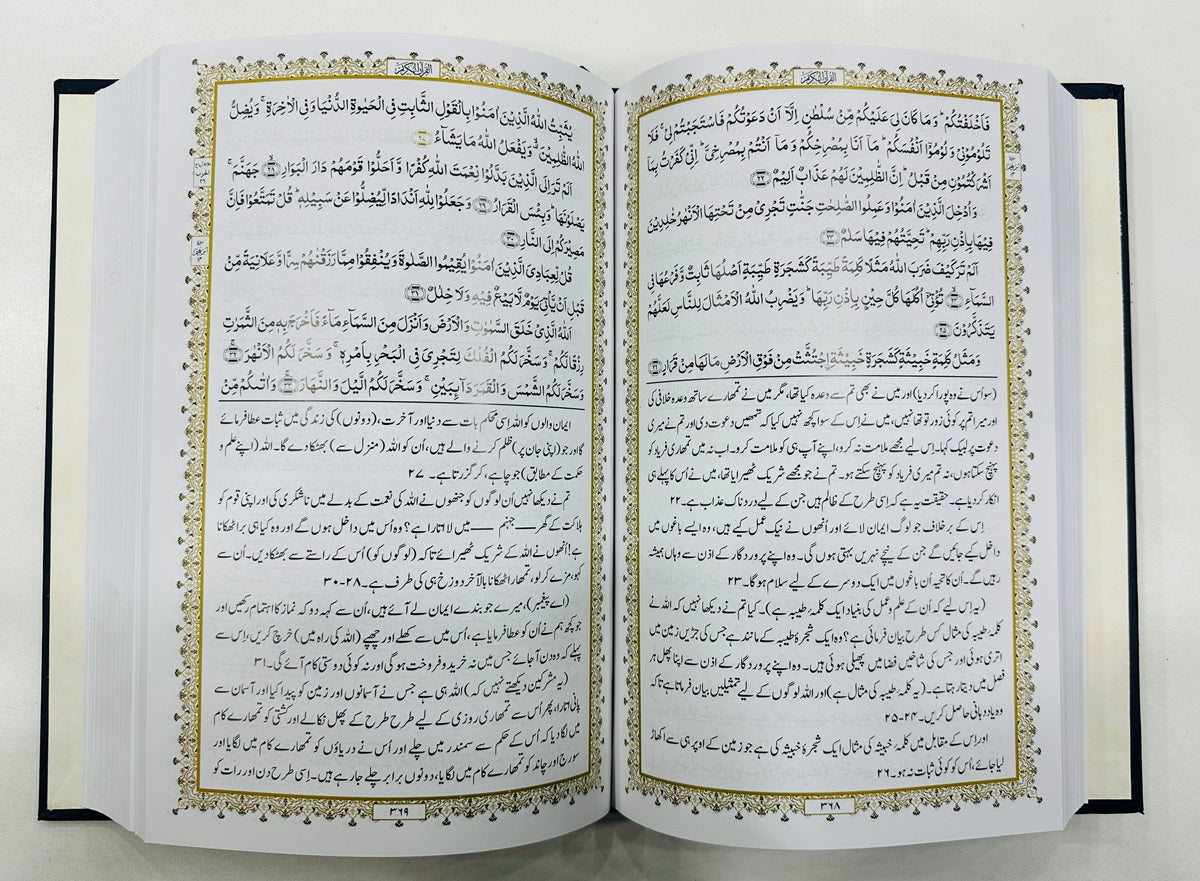 القرآن الکریم
فَاَخْلَفْتُكُمْ ؕ وَمَا كَانَ لِیَ عَلَیْكُمْ مِّنْ سُلْطٰنٍ اِلَّاۤ اَنْ دَعَوْتُكُمْ فَاسْتَجَبْتُمْ لِیْ ۚ فَلَا
تَلُوْمُوْنِیْ وَلُوْمُوْۤا اَنْفُسَكُمْ ؕ مَاۤ اَنَا بِمُصْرِخِكُمْ وَمَاۤ اَنْتُمْ بِمُصْرِخِیَّ ؕ اِنِّیْ كَفَرْتُ بِمَاۤ
اَشْرَكْتُمُوْنِ مِنْ قَبْلُ ؕ اِنَّ الظّٰلِمِیْنَ لَهُمْ عَذَابٌ اَلِیْمٌ ﴿۲۲﴾
وَاُدْخِلَ الَّذِیْنَ اٰمَنُوْا وَعَمِلُوا الصّٰلِحٰتِ جَنّٰتٍ تَجْرِیْ مِنْ تَحْتِهَا الْاَنْهٰرُ خٰلِدِیْنَ
فِیْهَا بِاِذْنِ رَبِّهِمْ ؕ تَحِیَّتُهُمْ فِیْهَا سَلٰمٌ ﴿۲۳﴾
اَلَمْ تَرَ كَیْفَ ضَرَبَ اللّٰهُ مَثَلًا كَلِمَةً طَیِّبَةً كَشَجَرَةٍ طَیِّبَةٍ اَصْلُهَا ثَابِتٌ وَّفَرْعُهَا فِی
السَّمَآءِ ﴿۲۴﴾ تُؤْتِیْۤ اُكُلَهَا كُلَّ حِیْنٍۭ بِاِذْنِ رَبِّهَا ؕ وَیَضْرِبُ اللّٰهُ الْاَمْثَالَ لِلنَّاسِ لَعَلَّهُمْ
یَتَذَكَّرُوْنَ ﴿۲۵﴾
وَمَثَلُ كَلِمَةٍ خَبِیْثَةٍ كَشَجَرَةٍ خَبِیْثَةِ ِ۟اجْتُثَّتْ مِنْ فَوْقِ الْاَرْضِ مَا لَهَا مِنْ قَرَارٍ ﴿۲۶﴾
(سو اُس نے وہ پورا کر دیا) اور میں نے بھی تم سے وعدہ کیا تھا، مگر میں نے تمھارے ساتھ وعدہ خلافی کی
اور میرا تم پر کوئی زور تو تھا نہیں، میں نے اِس کے سوا کچھ نہیں کیا کہ تمھیں دعوت دی اور تم نے میری
دعوت پر لبیک کہا۔ اِس لیے مجھے ملامت نہ کرو، اپنے آپ ہی کو ملامت کرو۔ اب نہ میں تمھاری فریاد کو
پہنچ سکتا ہوں، نہ تم میری فریاد کو پہنچ سکتے ہو۔ تم نے جو مجھے شریک ٹھیرایا تھا، میں نے اُس کا پہلے ہی
انکار کر دیا ہے۔ حقیقت یہ ہے کہ اِسی طرح کے ظالم ہیں جن کے لیے درد ناک عذاب ہے۔ ۲۲
اِس کے برخلاف جو لوگ ایمان لائے اور اُنھوں نے نیک عمل کیے ہیں، وہ ایسے باغوں میں
داخل کیے جائیں گے جن کے نیچے نہریں بہتی ہوں گی۔ وہ اپنے پروردگار کے اذن سے وہاں ہمیشہ
رہیں گے۔ اُن کا تحیہ اُن باغوں میں ایک دوسرے کے لیے سلام ہو گا۔ ۲۳
(یہ اِس لیے کہ اُن کے علم و عمل کی بنیاد ایک کلمۂ طیبہ ہے)۔ کیا تم نے دیکھا نہیں کہ اللہ نے
کلمۂ طیبہ کی مثال کس طرح بیان فرمائی ہے؟ وہ ایک شجرۂ طیبہ کے مانند ہے جس کی جڑیں زمین میں
اتری ہوئی اور جس کی شاخیں فضا میں پھیلی ہوئی ہیں۔ وہ اپنے پروردگار کے اذن سے اپنا پھل ہر
فصل میں دیتا رہتا ہے۔ (یہ کلمۂ طیبہ کی مثال ہے) اور اللہ لوگوں کے لیے تمثیلیں بیان فرماتا ہے تاکہ
وہ یاددہانی حاصل کریں۔ ۲۴-۲۵
اور اِس کے مقابل میں کلمۂ خبیثہ کی مثال ایک شجرۂ خبیثہ کی ہے جو زمین کے اوپر ہی سے اکھاڑ
لیا جائے، اُس کو کوئی ثبات نہ ہو۔ ۲۶
۳۶۸
القرآن الکریم
یُثَبِّتُ اللّٰهُ الَّذِیْنَ اٰمَنُوْا بِالْقَوْلِ الثَّابِتِ فِی الْحَیٰوةِ الدُّنْیَا وَفِی الْاٰخِرَةِ ۚ وَیُضِلُّ
اللّٰهُ الظّٰلِمِیْنَ ۙ۫ وَیَفْعَلُ اللّٰهُ مَا یَشَآءُ ﴿۲۷﴾
اَلَمْ تَرَ اِلَی الَّذِیْنَ بَدَّلُوْا نِعْمَتَ اللّٰهِ كُفْرًا وَّاَحَلُّوْا قَوْمَهُمْ دَارَ الْبَوَارِ ﴿۲۸﴾ جَهَنَّمَ ۚ
یَصْلَوْنَهَا ؕ وَبِئْسَ الْقَرَارُ ﴿۲۹﴾ وَجَعَلُوْا لِلّٰهِ اَنْدَادًا لِّیُضِلُّوْا عَنْ سَبِیْلِهٖ ؕ قُلْ تَمَتَّعُوْا فَاِنَّ
مَصِیْرَكُمْ اِلَی النَّارِ ﴿۳۰﴾
قُلْ لِّعِبَادِیَ الَّذِیْنَ اٰمَنُوْا یُقِیْمُوا الصَّلٰوةَ وَیُنْفِقُوْا مِمَّا رَزَقْنٰهُمْ سِرًّا وَّعَلَانِیَةً مِّنْ
قَبْلِ اَنْ یَّاْتِیَ یَوْمٌ لَّا بَیْعٌ فِیْهِ وَلَا خِلٰلٌ ﴿۳۱﴾
اَللّٰهُ الَّذِیْ خَلَقَ السَّمٰوٰتِ وَالْاَرْضَ وَاَنْزَلَ مِنَ السَّمَآءِ مَآءً فَاَخْرَجَ بِهٖ مِنَ الثَّمَرٰتِ
رِزْقًا لَّكُمْ ۚ وَسَخَّرَ لَكُمُ الْفُلْكَ لِتَجْرِیَ فِی الْبَحْرِ بِاَمْرِهٖ ۚ وَسَخَّرَ لَكُمُ الْاَنْهٰرَ ﴿۳۲﴾
وَسَخَّرَ لَكُمُ الشَّمْسَ وَالْقَمَرَ دَآىِٕبَیْنِ ۚ وَسَخَّرَ لَكُمُ الَّیْلَ وَالنَّهَارَ ﴿۳۳﴾ وَاٰتٰىكُمْ مِّنْ
ایمان والوں کو اللہ اِسی محکم بات سے دنیا اور آخرت، (دونوں) کی زندگی میں ثبات عطا فرمائے
گا اور جو (اپنی جان پر) ظلم کرنے والے ہیں، اُن کو اللہ (منزل سے) بھٹکا دے گا۔ اللہ (اپنے علم و
حکمت کے مطابق) جو چاہے، کر گزرتا ہے۔ ۲۷
تم نے دیکھا نہیں اُن لوگوں کو جنھوں نے اللہ کی نعمت کے بدلے میں ناشکری کی اور اپنی قوم کو
ہلاکت کے گھر — جہنم — میں لا اتارا ہے؟ وہ اُس میں داخل ہوں گے اور وہ کیا ہی برا ٹھکانا
ہے! اُنھوں نے اللہ کے شریک ٹھیرائے تاکہ (لوگوں کو) اُس کے راستے سے بھٹکا دیں۔ اُن سے
کہو، مزے کر لو، تمھارا ٹھکانا بالآخر دوزخ ہی کی طرف ہے۔ ۲۸-۳۰
(اے پیغمبر)، میرے جو بندے ایمان لے آئے ہیں، اُن سے کہہ دو کہ نماز کا اہتمام رکھیں اور
جو کچھ ہم نے اُن کو عطا فرمایا ہے، اُس میں سے کھلے اور چھپے (اللہ کی راہ میں) خرچ کریں، اِس سے
پہلے کہ وہ دن آجائے جس میں نہ خرید و فروخت ہو گی اور نہ کوئی دوستی کام آئے گی۔ ۳۱
(یہ مشرکین دیکھتے نہیں کہ) اللہ ہی ہے جس نے آسمانوں اور زمین کو پیدا کیا اور آسمان سے
پانی اتارا، پھر اُس سے تمھاری روزی کے لیے طرح طرح کے پھل نکالے اور کشتی کو تمھارے کام
میں لگا دیا کہ اُس کے حکم سے سمندر میں چلے اور اُس نے دریاؤں کو تمھارے کام میں لگایا اور
سورج اور چاند کو تمھارے کام میں لگایا، دونوں برابر چلے جا رہے ہیں۔ اِسی طرح دن اور رات کو
۳۶۹